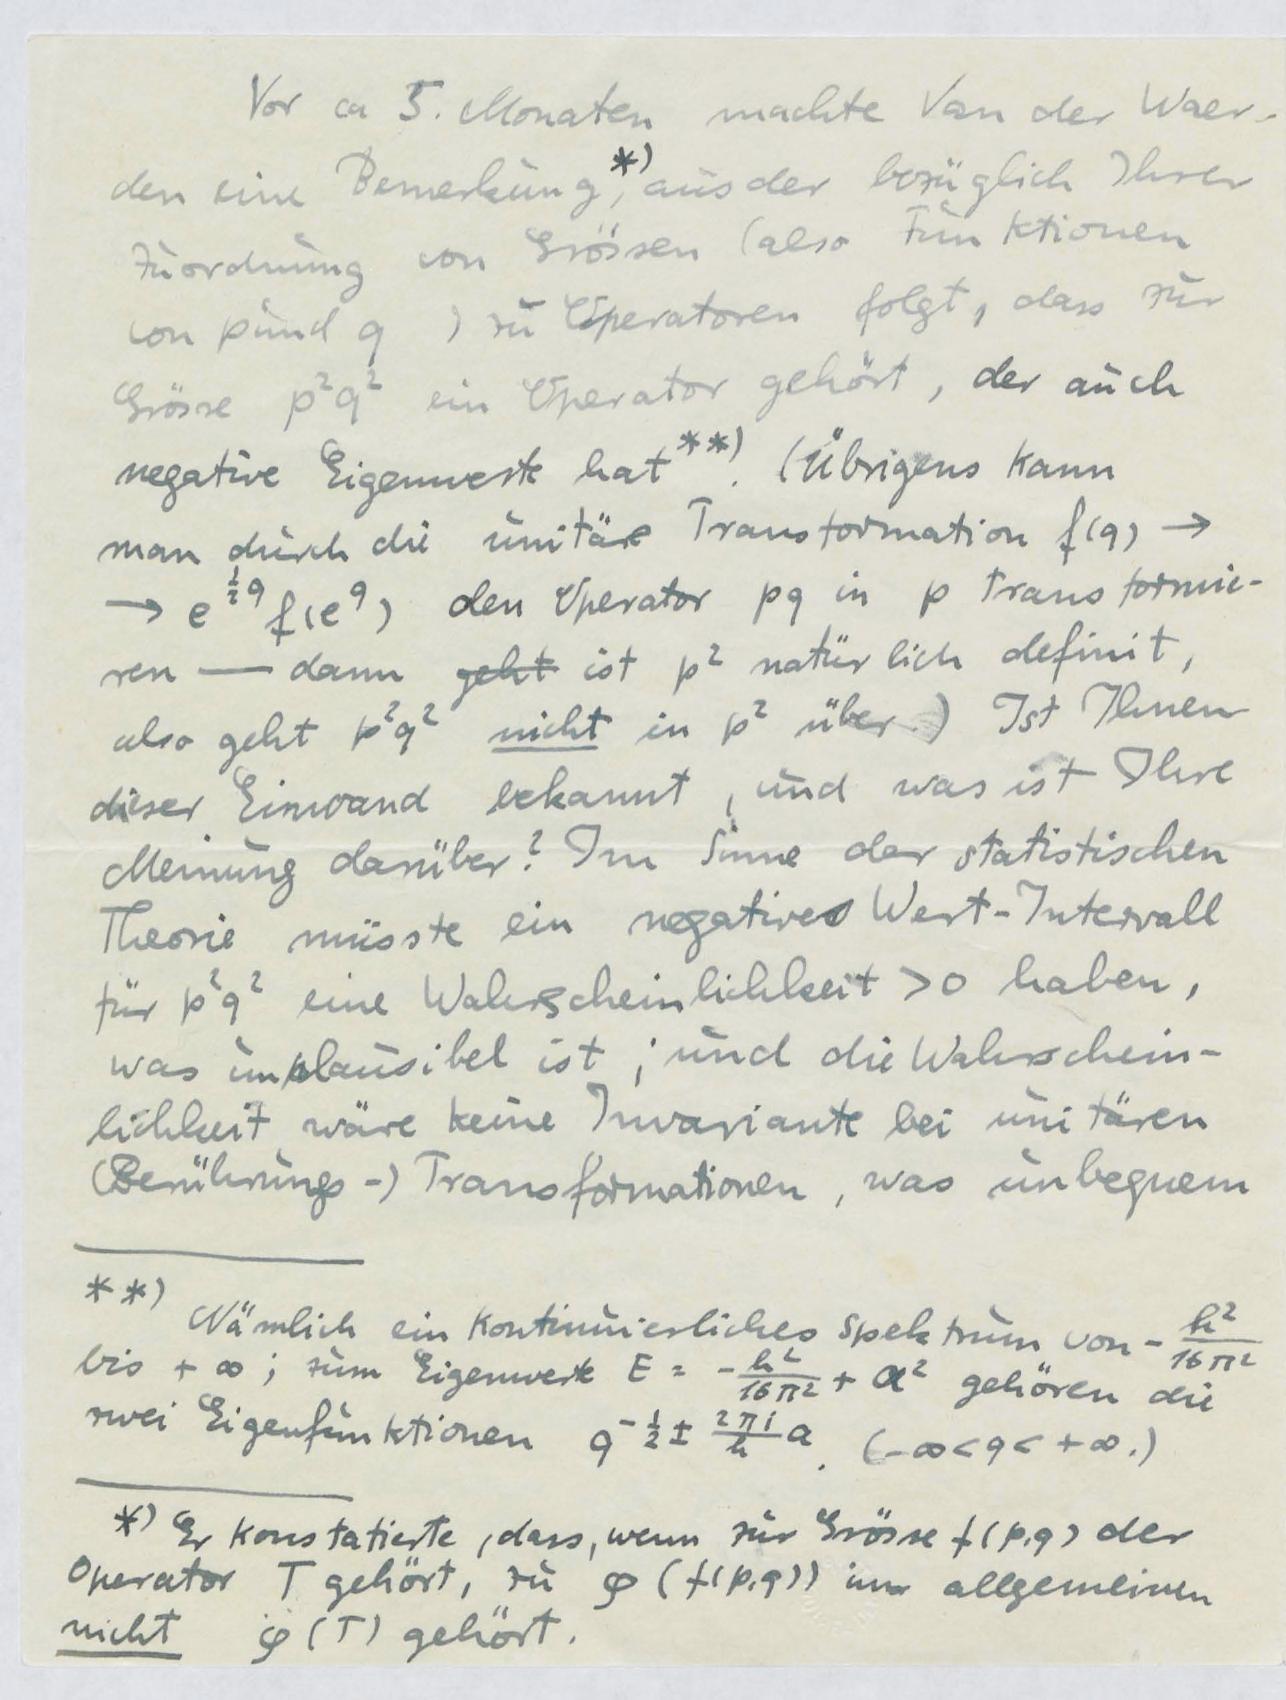 Vor ca 5. Monaten machte Van der Waer-
den eine Bemerkung,*) aus der bezüglich Ihrer
Zuordnung von Grössen (also Funktionen
von p und q ) zu Operatoren folgt, dass zur
Grösse p²q² ein Operator gehört, der auch
negative Eigenwerte hat**). (Übrigens kann
man durch die unitäre Transformation f(q) →
→ e^{½q} f(e^q) den Operator pq in p transformie-
ren — dann ~~geht~~ ist p² natürlich definit,
also geht p²q² nicht in p² über.) Ist Ihnen
dieser Einwand bekannt, und was ist Ihre
Meinung darüber? Im Sinne der statistischen
Theorie müsste ein negatives Wert-Intervall
für p²q² eine Wahrscheinlichkeit >0 haben,
was implausibel ist; und die Wahrschein-
lichkeit wäre keine Invariante bei unitären
(Berührungs-) Transformationen, was unbequem
**) Nämlich ein kontinuierliches Spektrum von - h²/16π²
bis + ∞; zum Eigenwerte E = - h²/16π² + a² gehören die
zwei Eigenfunktionen q^{-½ ± (2πi/h) a}. (-∞<q<+∞.)
*) Er konstatierte, dass, wenn zur Grösse f(p,q) der
Operator T gehört, zu φ(f(p,q)) im allgemeinen
nicht φ(T) gehört.